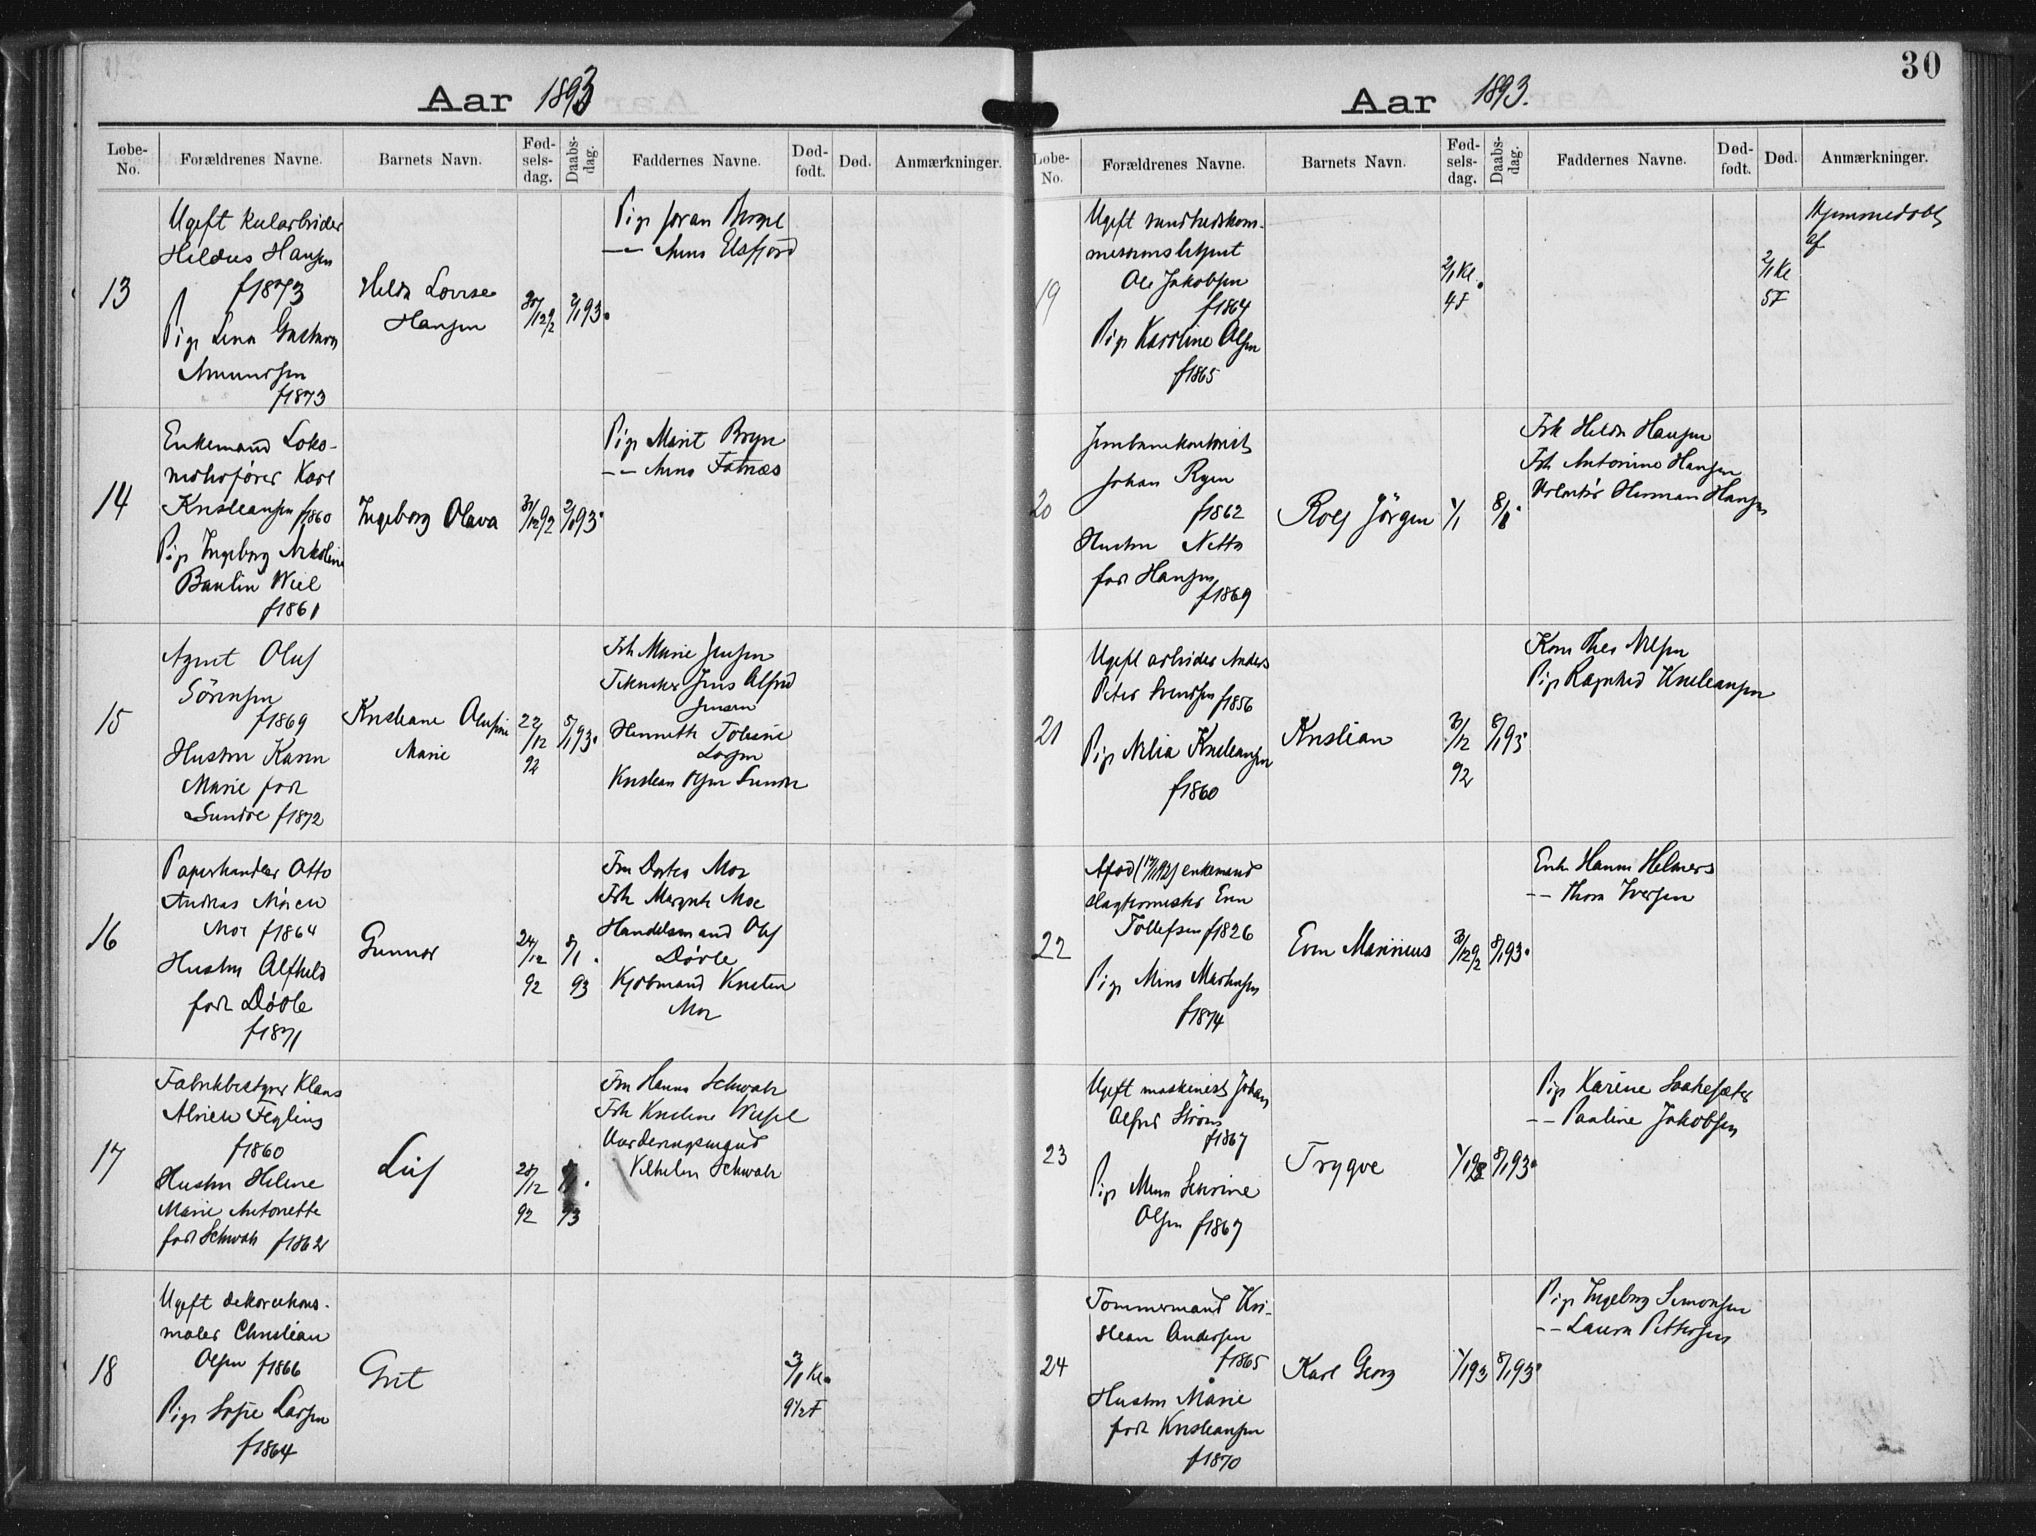 Aar 1893
Løbe-No. Forældrenes Navne. Barnets Navn. Fød-sels-dag. Daabs-dag. Faddernes Navne. Død-født. Død. Anmærkninger.
13
Ugeft
Hildus Hansen
f1873
Pige Lina
Amundsen
f1873
Hilda Lovise
Hansen
2/1 93.
Pige
—"— Anna Elsfjord
14
Enkemand Loko-
motivfører Karl
Kristiansen f1860
Pige Ingeborg Nikoline
Wiel
f1861
Ingeborg Olava
31/12 92
2/1 93.
Pige Marit Bryn
—"— Anna
15
Agent Olus
Sørensen
f1869
Hustru Karen
Marie født
Sundve f1872
Kristiane
Marie
22/12
92
8/1 93.
Frk Marie Jensen
Jens Alfred
Jensen
Kristian Olsen
16
Papirhandler Otto
Andreas
Moe f1864
Hustru Alfhild
født Døvle
f1871
Gunnar
24/12
92
8/1.
93
Fru Dortea Moe
Frk Margrete Moe
Handelsmand Oluf
Døvle
Kjøbmand Kristen
Moe
17
Fabrikbestyrer Klaus
f1860
Hustru Helene
Marie Antonette
født Schwab f1862
Leif
28/12
92
93
Fru Hanna Schwab
Frk Kristine
Vurderingsmand
Vilhelm Schwab
18
Ugift dekorations-
maler Christian
Olsen f1866
Pige Sofie Larsen
f1864
Gut
Kl.
9½ F
30
Aar 1893.
Løbe-No. Forældrenes Navne. Barnets Navn. Fød-sels-dag. Daabs-dag. Faddernes Navne. Død-født. Død. Anmærkninger.
19
Ugift sundhedskom-
Ole Jakobsen
f1864
Pige Karoline Olsen
f1865
2/1 Kl.
4 F
2/1 Kl
5 F
Hjemmedøbt
af
20
Jernbanekontorist
Johan Ryen
f1862
Hustru Netta
født Hansen
f1869
Rolf Jörgen
1/1
8/1.
Frk Hilda Hansen
Frk Antonine Hansen
Volontör Herman Hansen
21
Ugift arbeider Anders
Peter Svendsen f1856
Pige Nilia Kristiansen
f1860
Kristian
31/12
92
8/1 93.
Kone Thea Nilsen
Pige Ragnhild Kristiansen
22
Afød enkemand
slagtermester Even
Tollefsen f1826
Pige Mina Mathisen
f1874
Even Marinius
31/12 92
8/1 93.
Enke Hanna Helmers
—"— Thora Iversen
23
Ugift maskinist Johan
Alfred Strøm
f1867
Pige Severine
Olsen f1867
Trygve
1/1 93
8/1 93.
Pige Karine
—"— Pauline Jakobsen
24
Tømmermand Kri-
stian Andersen
f1865
Hustru Marie
født Kristiansen
f1870
Karl Georg
1/1 93
8/1 93.
Pige Ingeborg Simonsen
—"— Laura Pettersen